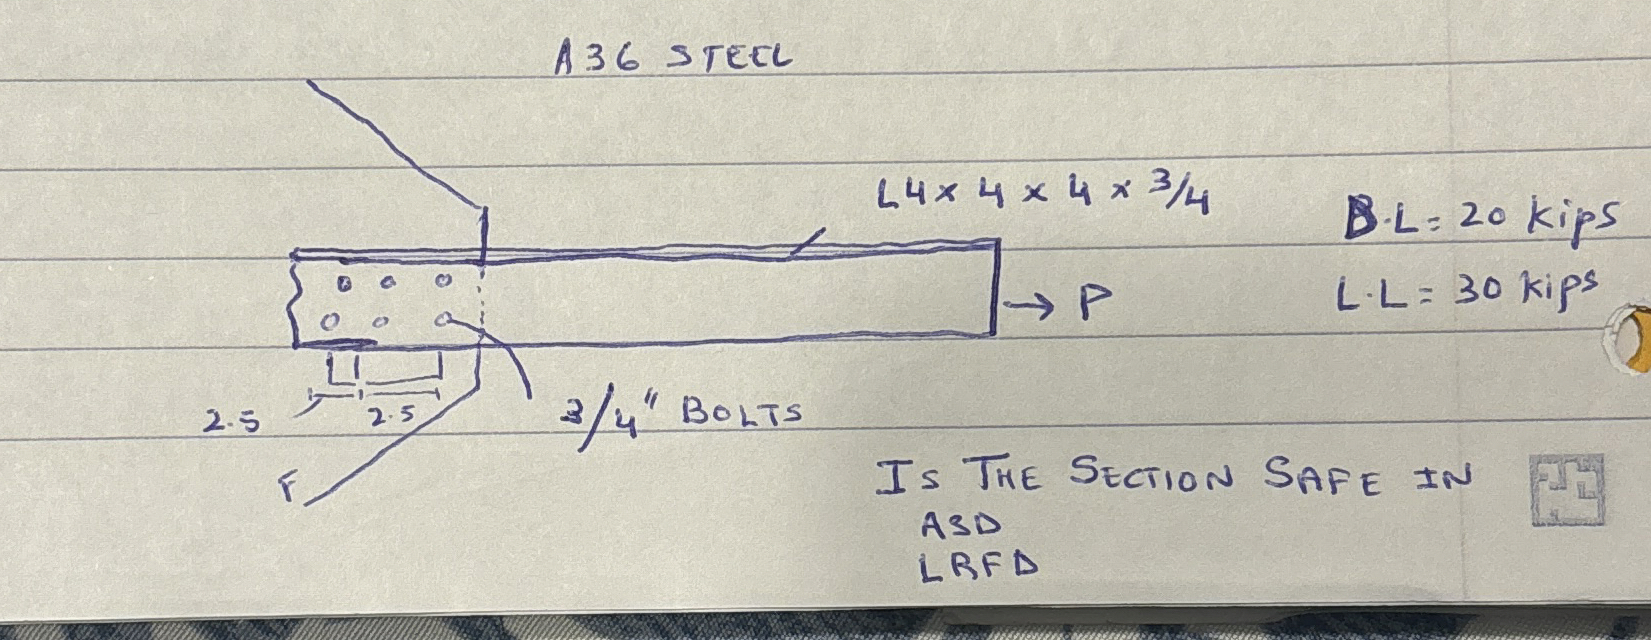 A36 STEEL
L4 x 4 x 4 x 3/4
D.L = 20 kips
L.L = 30 kips
→ P
2.5
2.5
3/4" BOLTS
IS THE SECTION SAFE IN
ASD
LRFD